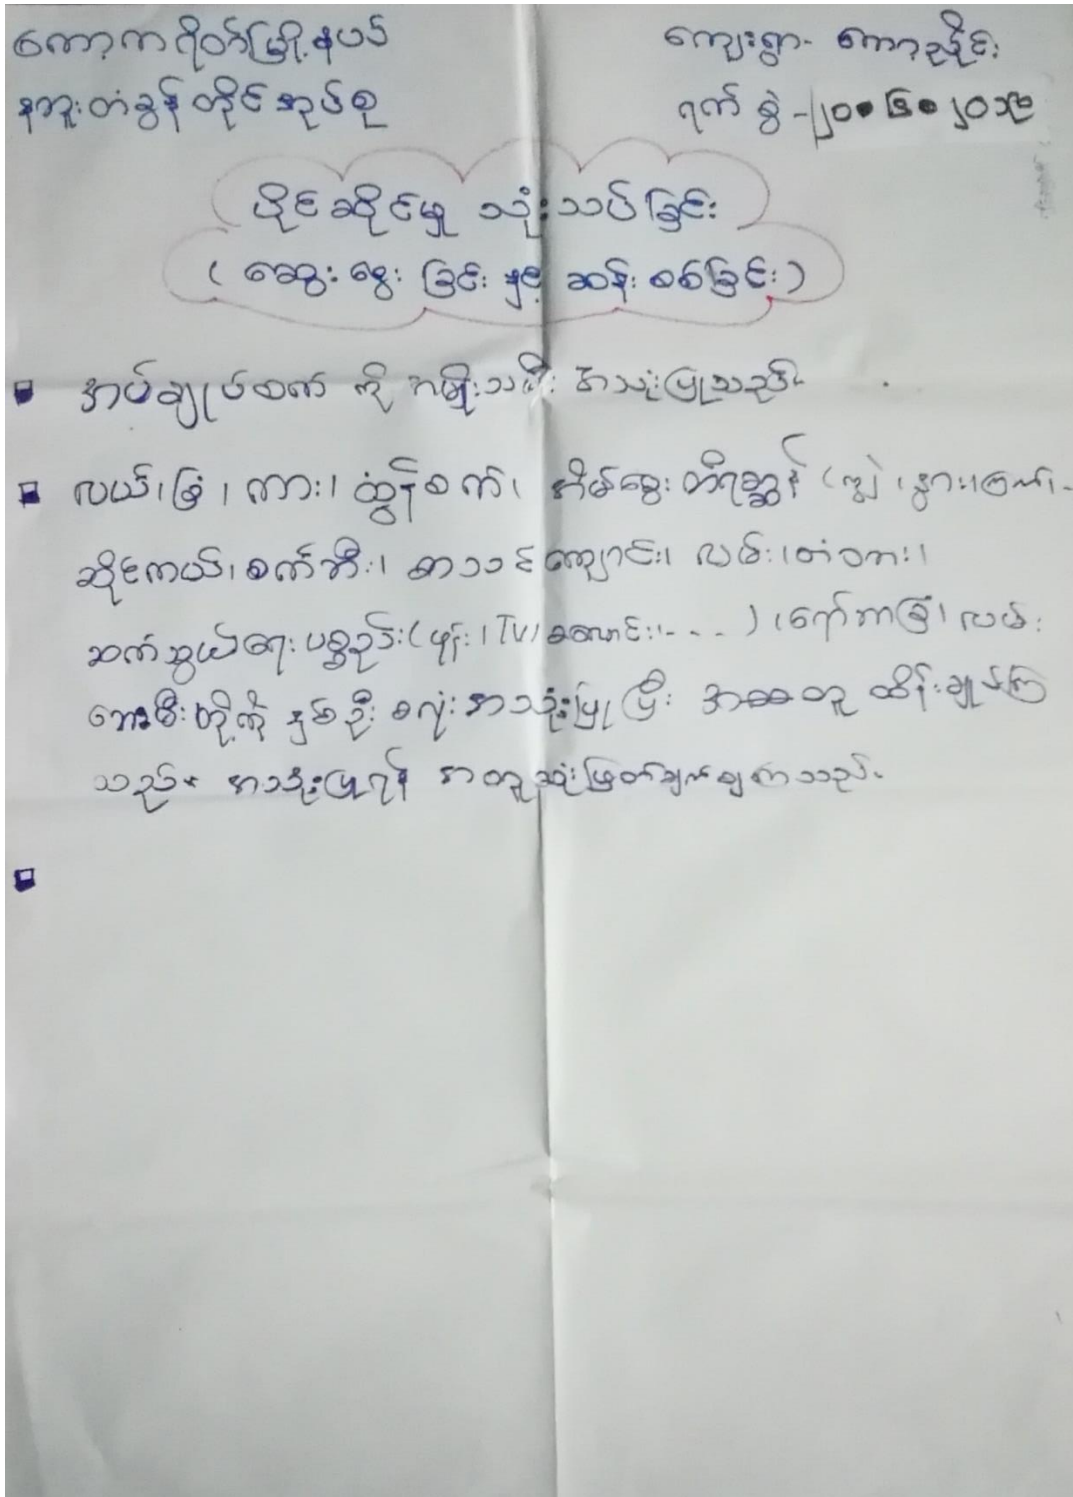 ကော့ကရိတ်မြို့နယ် ကျေးရွာ- ကော့ညှိုင်း
နဘူးတံခွန်တိုင်အုပ်စု ရက်စွဲ -၂၀
ပိုင်ဆိုင်မှု သုံးသပ်ခြင်း
( ဆွေးနွေးခြင်း နှင့် ဆန်းစစ်ခြင်း )
အပ်ချုပ်စက် ကို အမျိုးသမီး အသုံးပြုသည်။
လယ်၊ ခြံ၊ ကား၊ ထွန်စက်၊ အိမ်မွေးတိရစ္ဆာန် (ကျွဲ၊ နွား၊ ကြက်၊ -
ဆိုင်ကယ်၊ စက်ဘီး၊ စာသင်ကျောင်း၊ လမ်း၊ တံတား၊
ဆက်သွယ်ရေးပစ္စည်း (ဖုန်း၊ TV၊ စလောင်း၊ - - - ) ၊ ရော်ဘာခြံ၊ လမ်း
ဘေးမီးတို့ကို နှစ်ဦးစလုံးအသုံးပြုပြီး အတူ ထိန်းချုပ်ကြ
သည်။ အသုံးပြုရန် အတူဆုံးဖြတ်ချက်ချကြသည်။